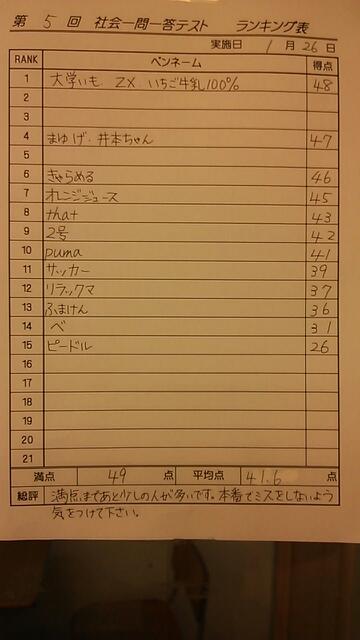 第 5 回 社会一問一答テスト ランキング表
実施日 1 月 26 日
RANK ペンネーム 得点
1 大学いも ZX いちご牛乳100% 48
2
3
4 まゆげ・井本ちゃん 47
5
6 きゃらめる 46
7 オレンジジュース 45
8 that 43
9 2号 42
10 puma 41
11 サッカー 39
12 リラックマ 37
13 ふまけん 36
14 ペ 31
15 ピードル 26
16
17
18
19
20
21
満点 49 点 平均点 41.6 点
総評 満点まであと少しの人が多いです。本番でミスをしないよう
気をつけて下さい。